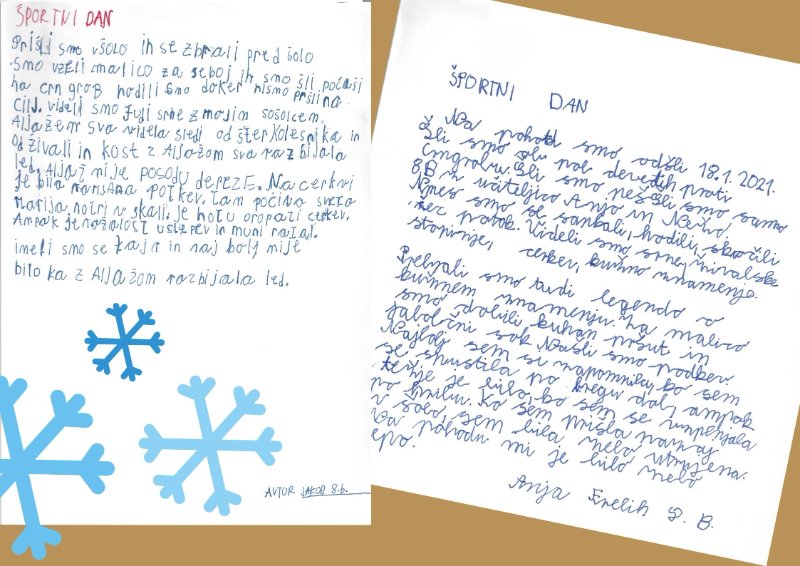 ŠPORTNI DAN
Prišli smo všolo ih se zbrali pred šolo
smo vzeli malico za seboj ih smo šli počasi
na crn grob hodili smo doker nismo pršli na
cilj. videli smo tudi srne z mojim sošolcem.
Aljažem sva videla sledi od šterkolesnika in
od živali in kost z Aljažom sva razbijala
led. Aljaž mije posodu dereze. Na cerkvi
je bila narisana potkev. tam počiva sveta
marija notri v skali. je hotu oropati cerkev.
Ampak je nažalost ustrepev in muni ratal.
imeli smo se taja in naj bolj mije
bilo ka z Aljažom razbijala led.
AVTOR JAKOB 8.b.
ŠPORTNI DAN
Na pohod smo odšli 18.1.2021.
Šli smo ob pol devetih proti
crngrobu. Šli smo peš. Šli smo samo
8.B z učiteljico Anjo in Nežvo.
Vmes smo se sankali, hodili, skočili
čez potok. Videli smo srne, živalske
stopinje, cerkev, kužno znamenje.
Prebrali smo tudi legendo o
kužnem znamenju. Za malico
smo dobili kuhan pršut in
jabolčni sok. Našli smo podkev.
Najbolj sem se zapomnila, ko sem
se spustila po bregu dol, ampak
težje je bilo, ko sem se vzpenjala
po hribu. Ko sem prišla nazaj
v šolo, sem bila zelo utrujena.
Na pohodu mi je bilo zelo
lepo.
Anja Erelih 8. B.